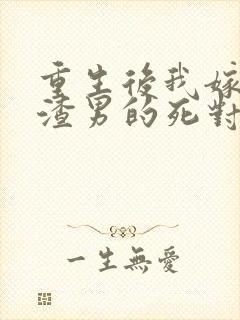 重生後我嫁
渣男的死對
一生無愛